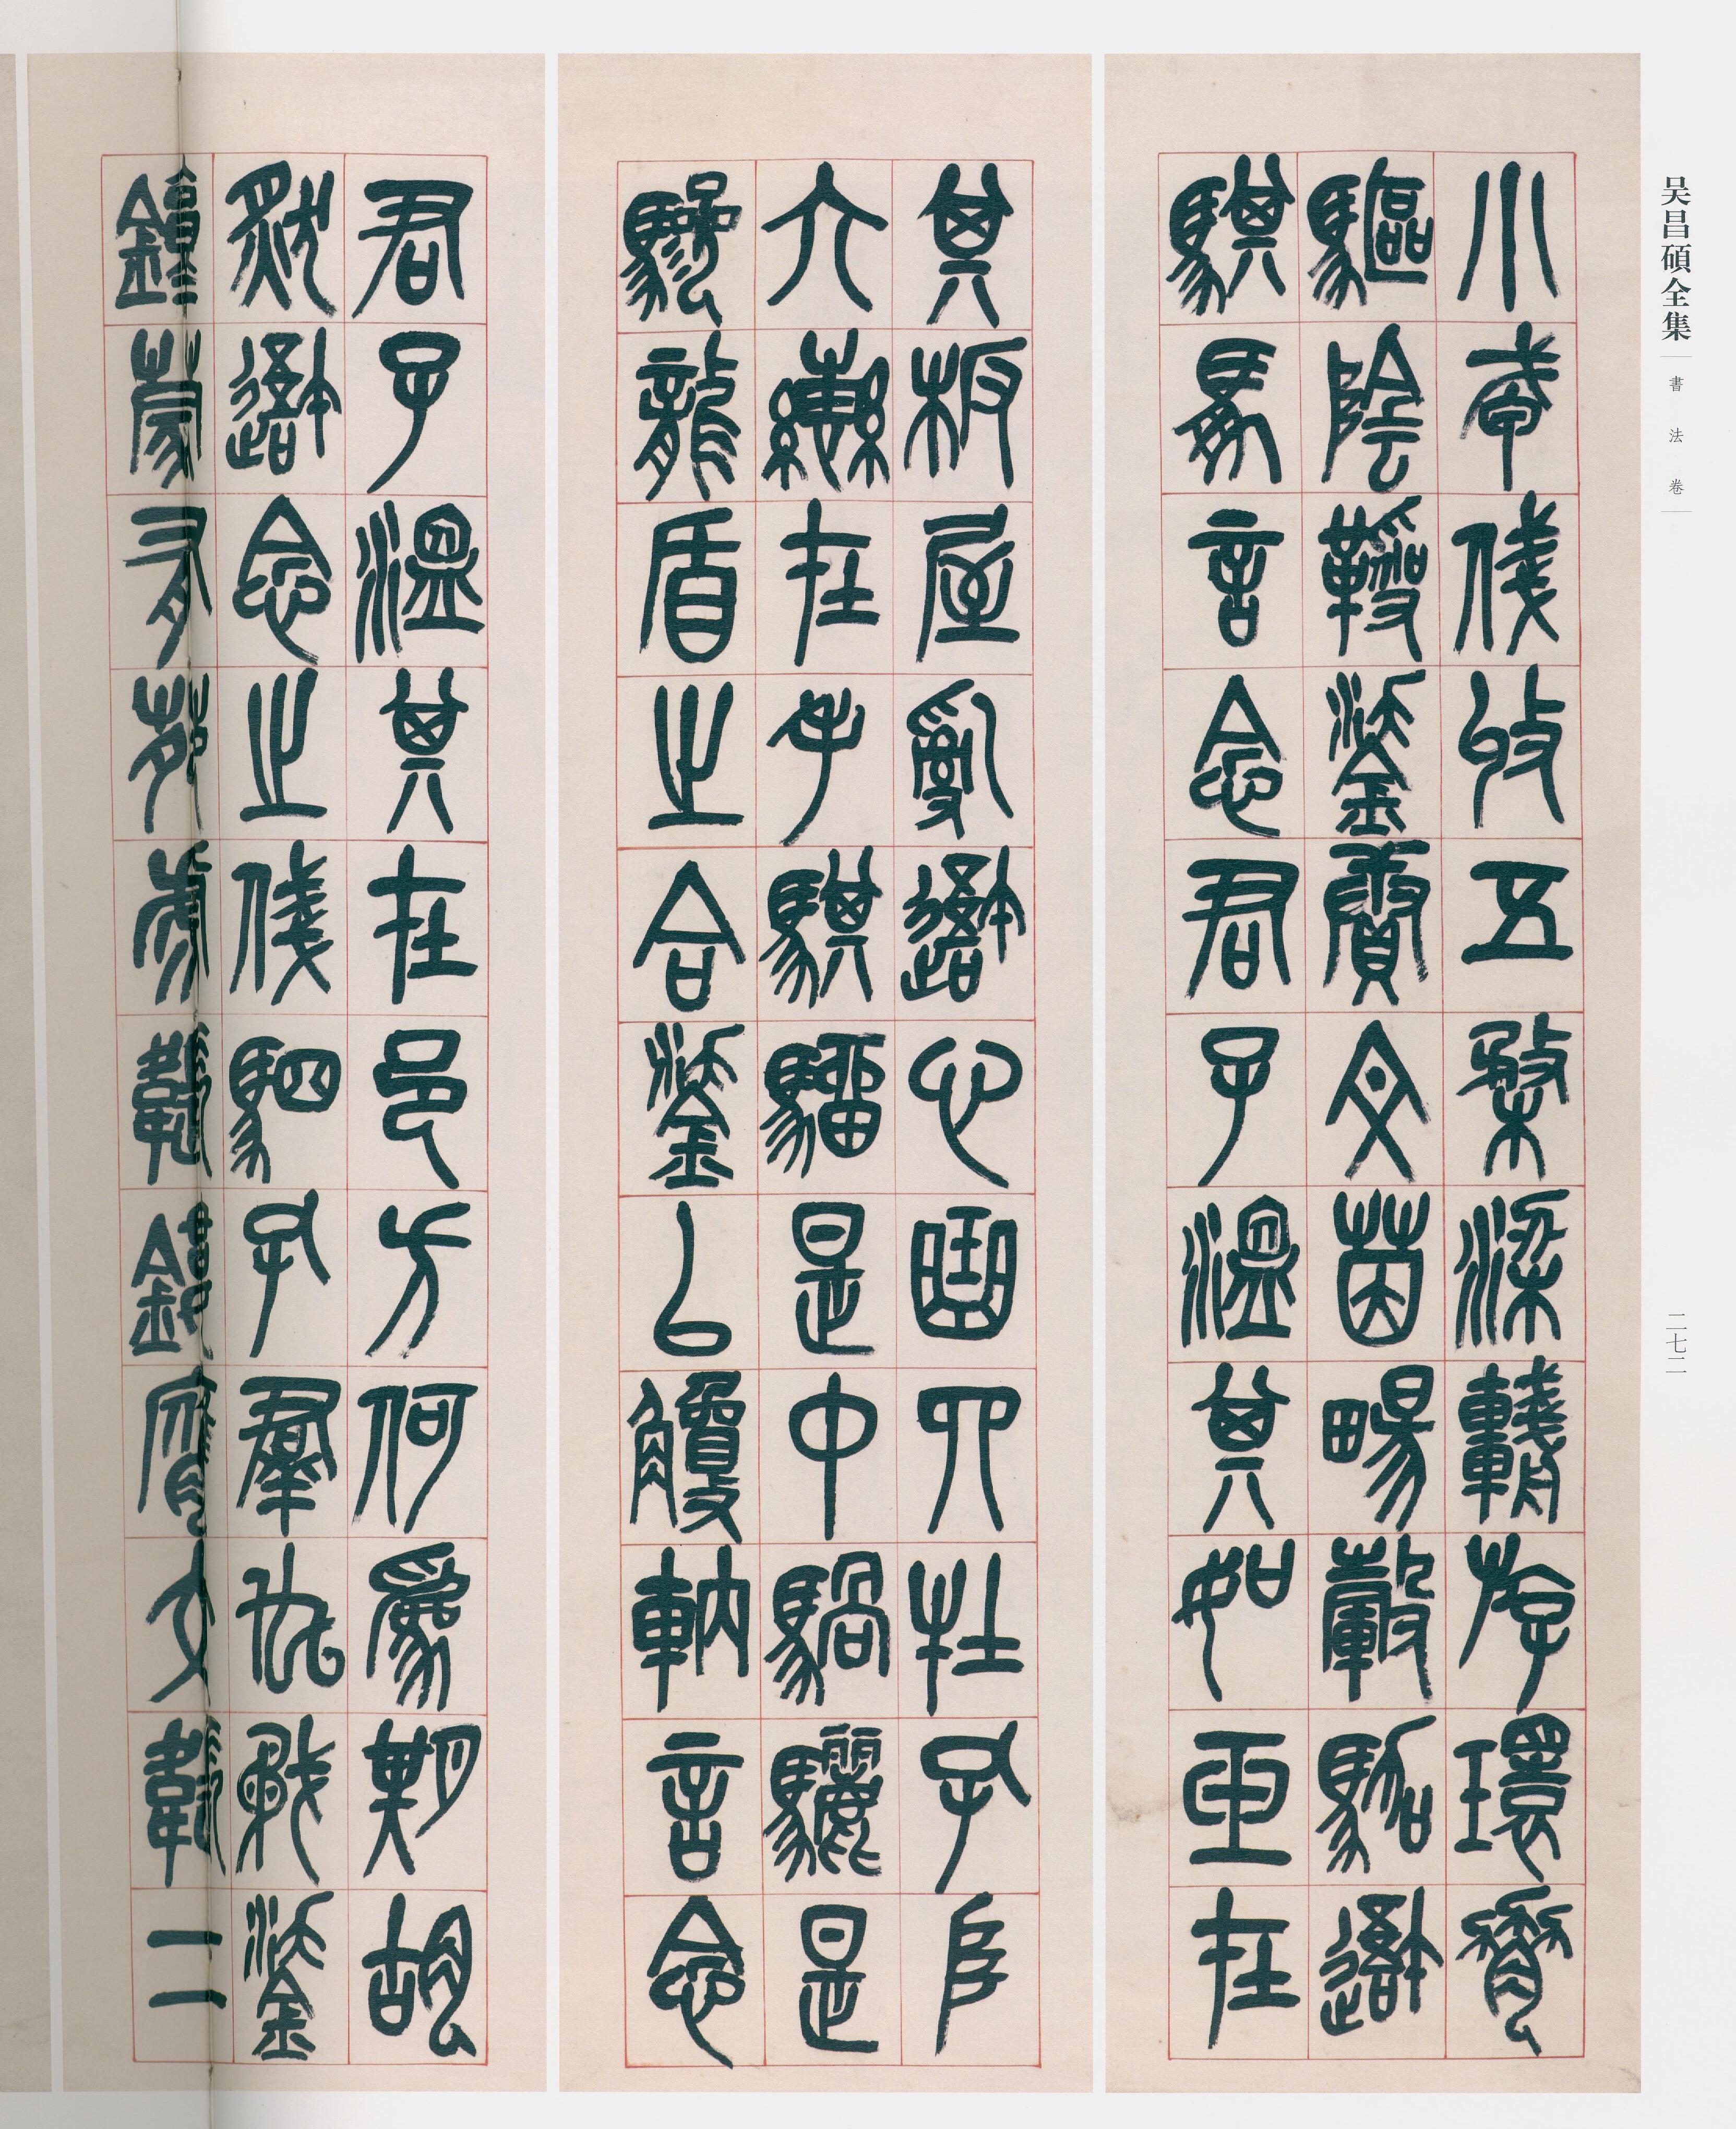 吴昌碩全集
書法卷
二七二
小戎俴收五楘梁輈游環脅
驅陰靷鋈續文茵暢轂駕我
騏馵言念君子溫其如玉在
其板屋亂我心曲四牡孔阜
六轡在手騏駵是中騧驪是
驂龍盾之合鋈以觼軜言念
君子溫其在邑方何為期胡
然我念之俴駟孔羣厹矛鋈
錞蒙有苑虎韔鏤膺交韔二